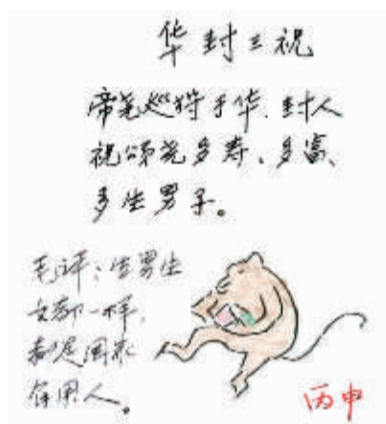 华封三祝
帝尧巡狩于华.封人
祝颂尧多寿、多富、
多生男子。
毛评:生男生
女都一样,
都是国家
有用人。
丙申